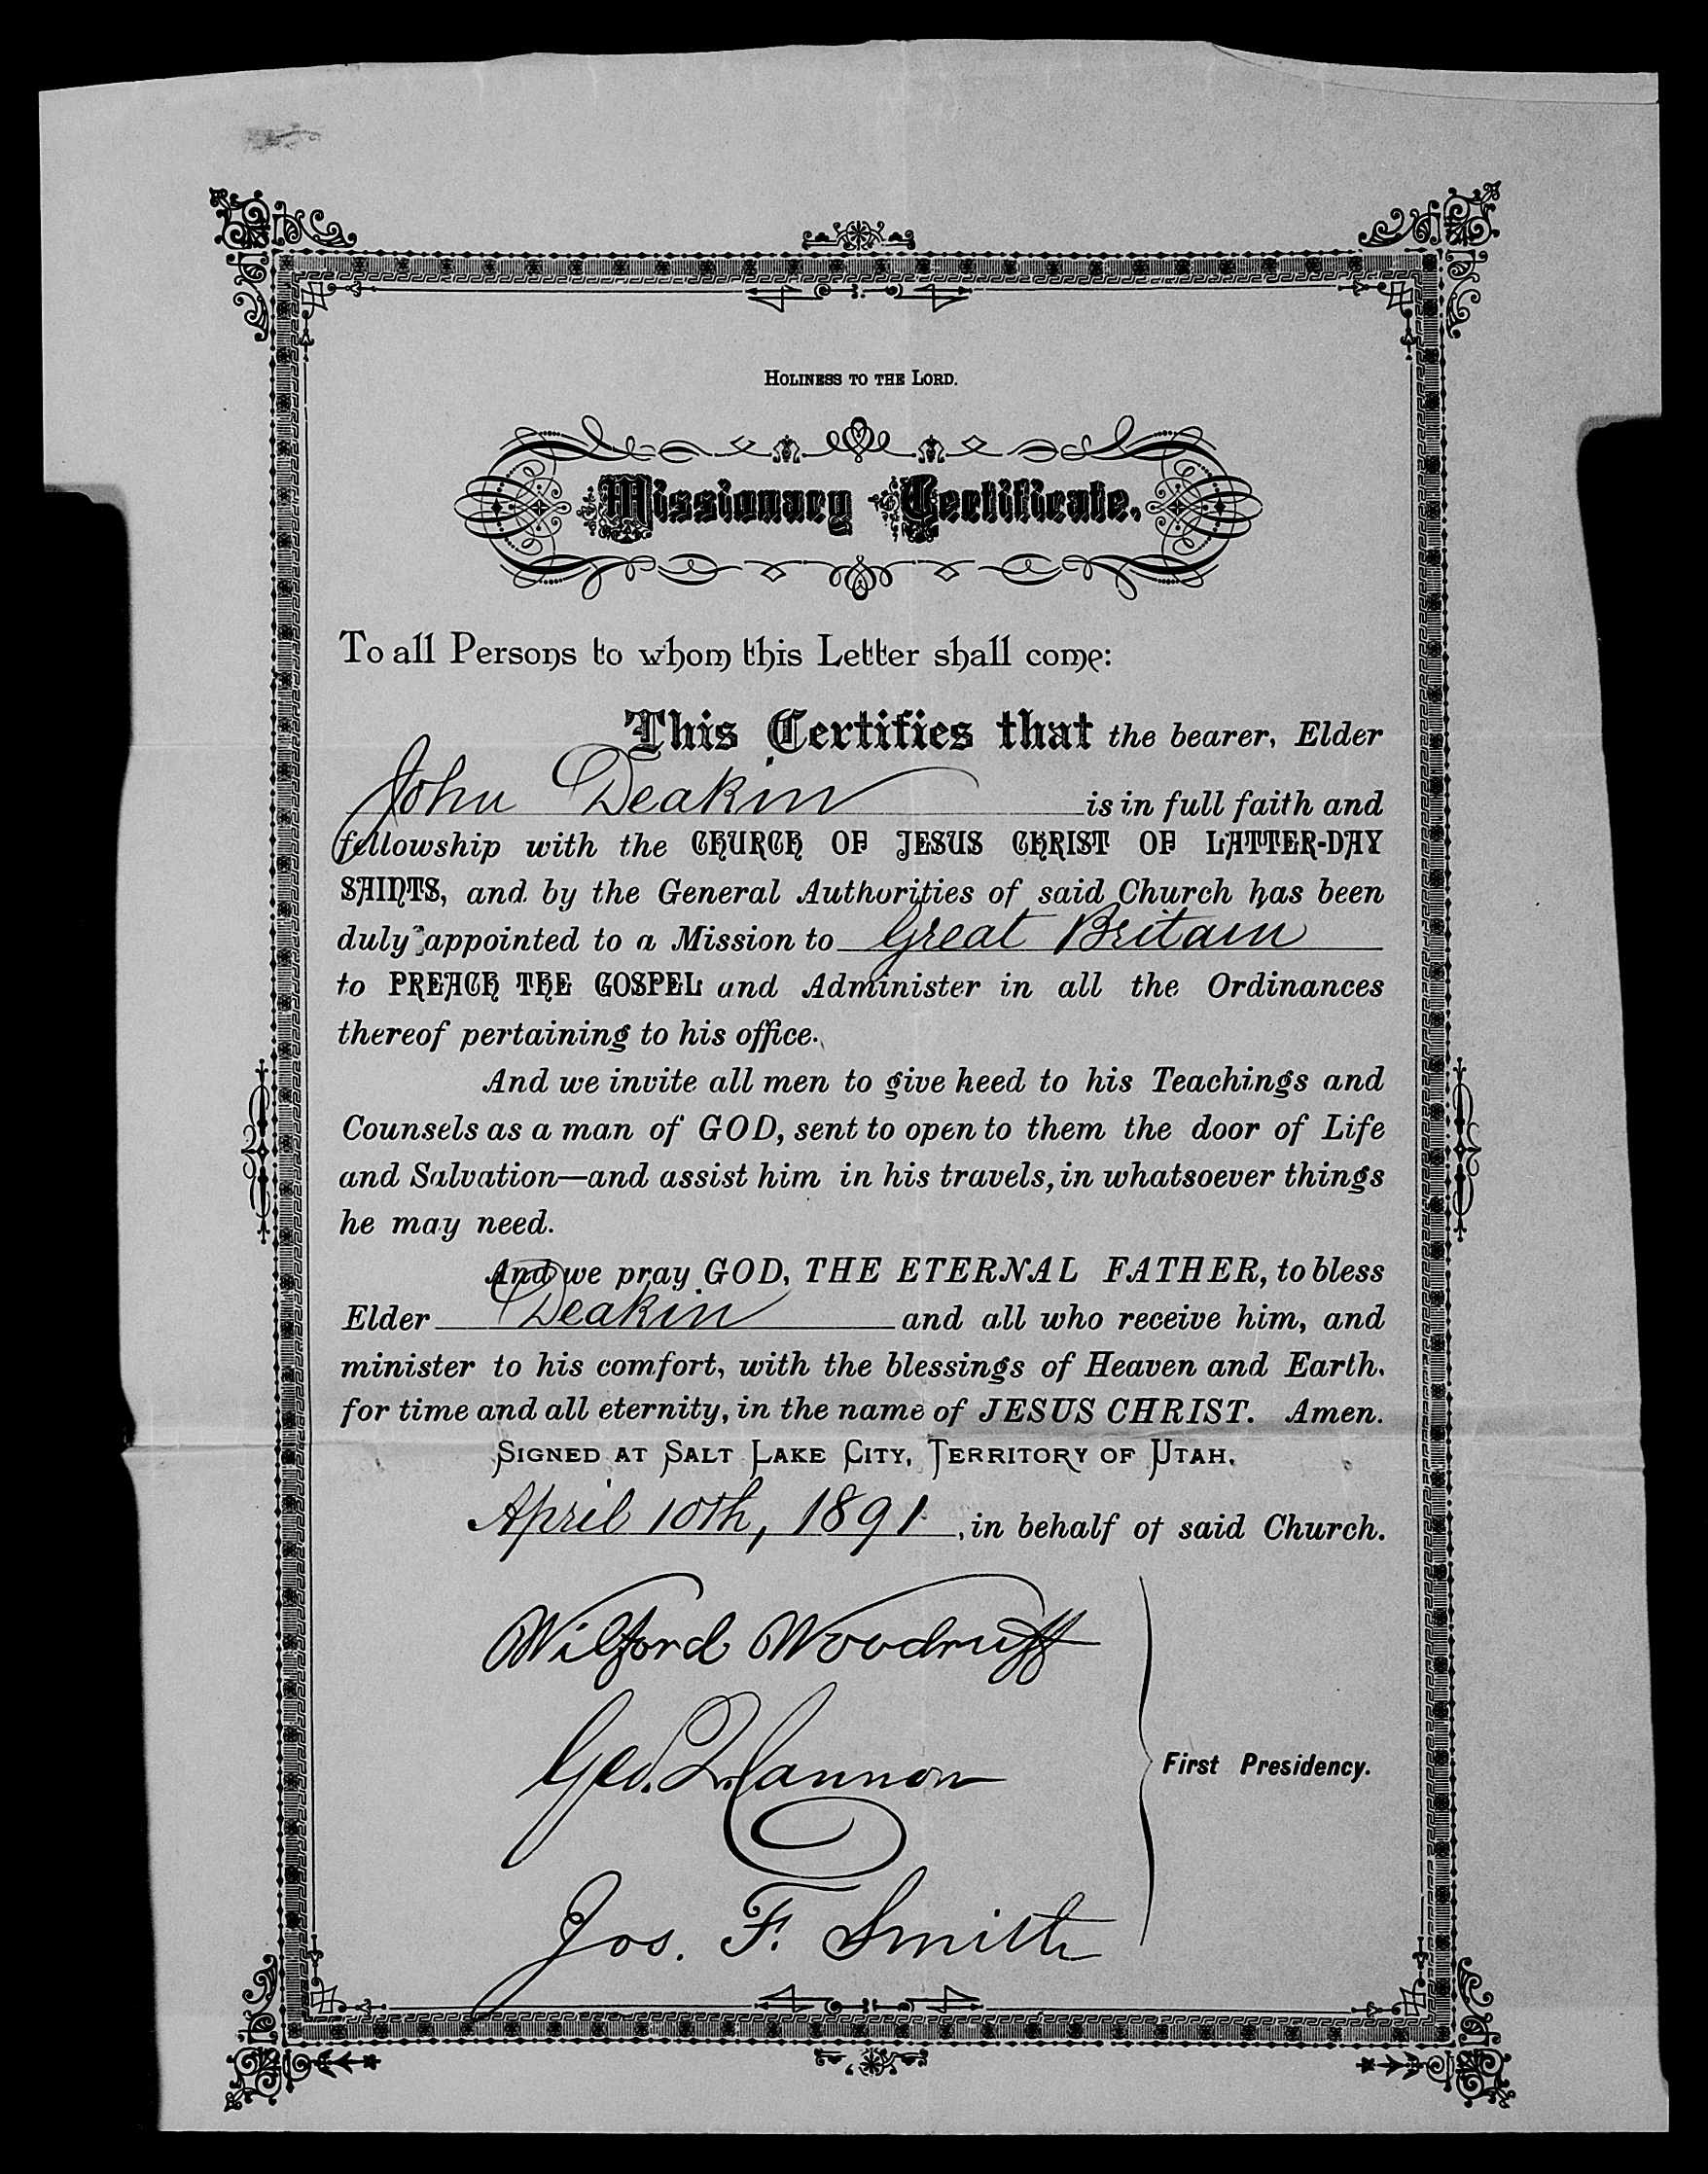 HOLINESS TO THE LORD.
Missionary Certificate.
To all Persons to whom this Letter shall come:
This Certifies that the bearer, Elder
John Deakin is in full faith and
fellowship with the CHURCH OF JESUS CHRIST OF LATTER-DAY
SAINTS, and by the General Authorities of said Church has been
duly appointed to a Mission to Great Britain
to PREACH THE GOSPEL and Administer in all the Ordinances
thereof pertaining to his office.
And we invite all men to give heed to his Teachings and
Counsels as a man of GOD, sent to open to them the door of Life
and Salvation—and assist him in his travels, in whatsoever things
he may need.
And we pray GOD, THE ETERNAL FATHER, to bless
Elder Deakin and all who receive him, and
minister to his comfort, with the blessings of Heaven and Earth,
for time and all eternity, in the name of JESUS CHRIST. Amen.
SIGNED AT SALT LAKE CITY, TERRITORY OF UTAH,
April 10th, 1891, in behalf of said Church.
Wilford Woodruff
Geo. Q. Cannon
First Presidency.
Jos. F. Smith